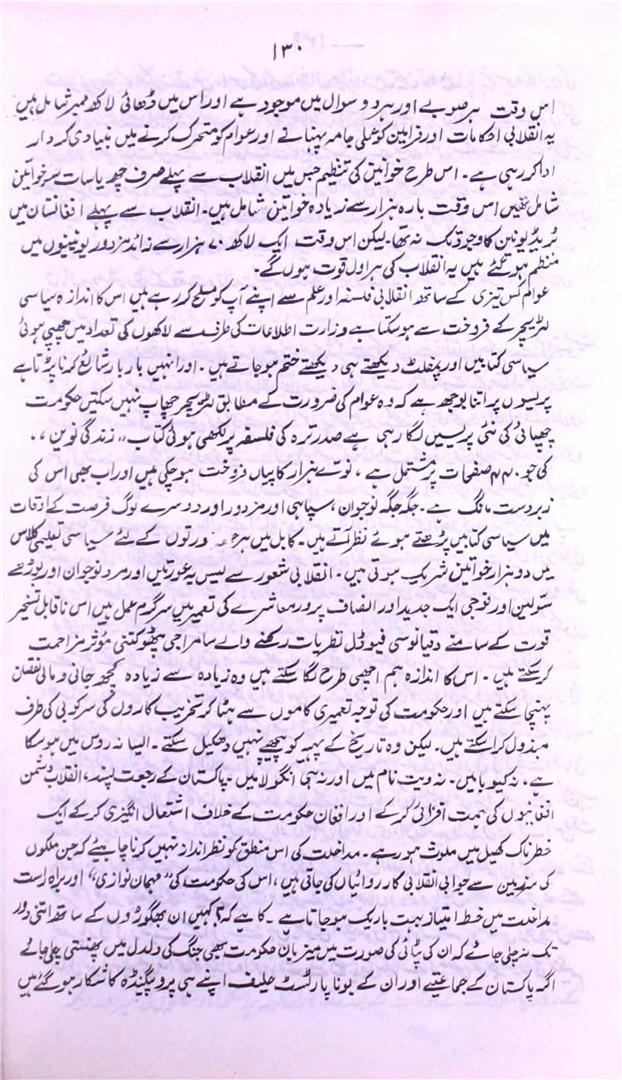 ۱۳۰
اس وقت ہر صوبے اور ہر وہ سوال میں موجود ہے اور اس میں ڈھائی لاکھ ممبر شامل ہیں
یہ انقلابی احکامات اور فرامین کو عملی جامہ پہنانے اور عوام کو متحرک کرنے میں بنیادی کردار
ادا کر رہی ہے۔ اس طرح خواتین کی تنظیم جس میں انقلاب سے پہلے صرف چھ یا سات سو خواتین
شامل تھیں اس وقت بارہ ہزار سے زیادہ خواتین شامل ہیں۔ انقلاب سے پہلے افغانستان میں
ٹریڈ یونین کا وجود تک نہ تھا۔ لیکن اس وقت ایک لاکھ ۷۰ ہزار سے زائد مزدور یونینوں میں
منظم ہو گئے ہیں یہ انقلاب کی ہراول قوت ہوں گے۔
عوام کس تیزی کے ساتھ انقلابی فلسفہ اور علم سے اپنے آپ کو مسلح کر رہے ہیں اس کا اندازہ سیاسی
لٹریچر کے فروخت سے ہو سکتا ہے وزارت اطلاعات کی طرف سے لاکھوں کی تعداد میں چھپی ہوئی
سیاسی کتابیں اور پمفلٹ دیکھتے ہی دیکھتے ختم ہو جاتے ہیں۔ اور انہیں بار بار شائع کرنا پڑتا ہے
پریسوں پر اتنا بوجھ ہے کہ وہ عوام کی ضرورت کے مطابق لٹریچر چھاپ نہیں سکتیں حکومت
چھپائی کی نئی پریس لگا رہی ہے صدر ترہ کی فلسفہ پر لکھی ہوئی کتاب ,,زندگی نوین،،
کی جو ۴۴۰ صفحات پر مشتمل ہے، نوے ہزار کاپیاں فروخت ہو چکی ہیں اور اب بھی اس کی
زبردست مانگ ہے۔ جگہ جگہ نوجوان، سپاہی اور مزدور اور دوسرے لوگ فرصت کے اوقات
میں سیاسی کتابیں پڑھتے ہوئے نظر آتے ہیں۔ کابل میں ہر عورتوں کے لئے سیاسی تعلیمی کلاس
میں دو ہزار خواتین شریک ہوتی ہیں۔ انقلابی شعور سے لیس یہ عورتیں اور مرد نوجوان اور بوڑھے
سولین اور فوجی ایک جدید اور انصاف پرور معاشرے کی تعمیر میں سرگرم عمل ہیں اس ناقابل تسخیر
قوت کے سامنے دقیانوسی فیوڈل نظریات رکھنے والے سامراجی پٹھو کتنی مؤثر مزاحمت
کر سکتے ہیں۔ اس کا اندازہ ہم اچھی طرح لگا سکتے ہیں وہ زیادہ سے زیادہ کچھ جانی و مالی نقصان
پہنچا سکتے ہیں اور حکومت کی توجہ تعمیری کاموں سے ہٹا کر تخریب کاروں کی سرکوبی کی طرف
مبذول کرا سکتے ہیں۔ لیکن وہ تاریخ کے پہیہ کو پیچھے نہیں دھکیل سکتے۔ ایسا نہ روس میں ہو سکا
ہے، نہ کیوبا میں۔ نہ ویت نام میں اور نہ ہی انگولا میں۔ پاکستان کے رجعت پسند، انقلاب دشمن
افغانیوں کی ہمت افزائی کر کے اور افغان حکومت کے خلاف اشتعال انگیزی کر کے ایک
خطرناک کھیل میں ملوث ہو رہے ہیں۔ مداخلت کی اس منطق کو نظر انداز نہیں کرنا چاہیئے کہ جن ملکوں
کی سرزمین سے جوابی انقلابی کارروائیاں کی جاتی ہیں، اس کی حکومت کی "مہمان نوازی" اور براہ راست
مداخلت میں خط امتیاز بہت باریک ہو جاتا ہے۔ کہیں ان بھگوڑوں کے ساتھ اتنی دور
تک نہ چلی جائے کہ ان کی پٹائی کی صورت میں میزبان حکومت بھی جنگ کی دلدل میں پھنستی چلی جائے
اگر پاکستان کے جماعتیے اور ان کے بونا پارٹسٹ حلیف اپنے ہی پروپگنڈہ کا شکار ہو گئے ہیں